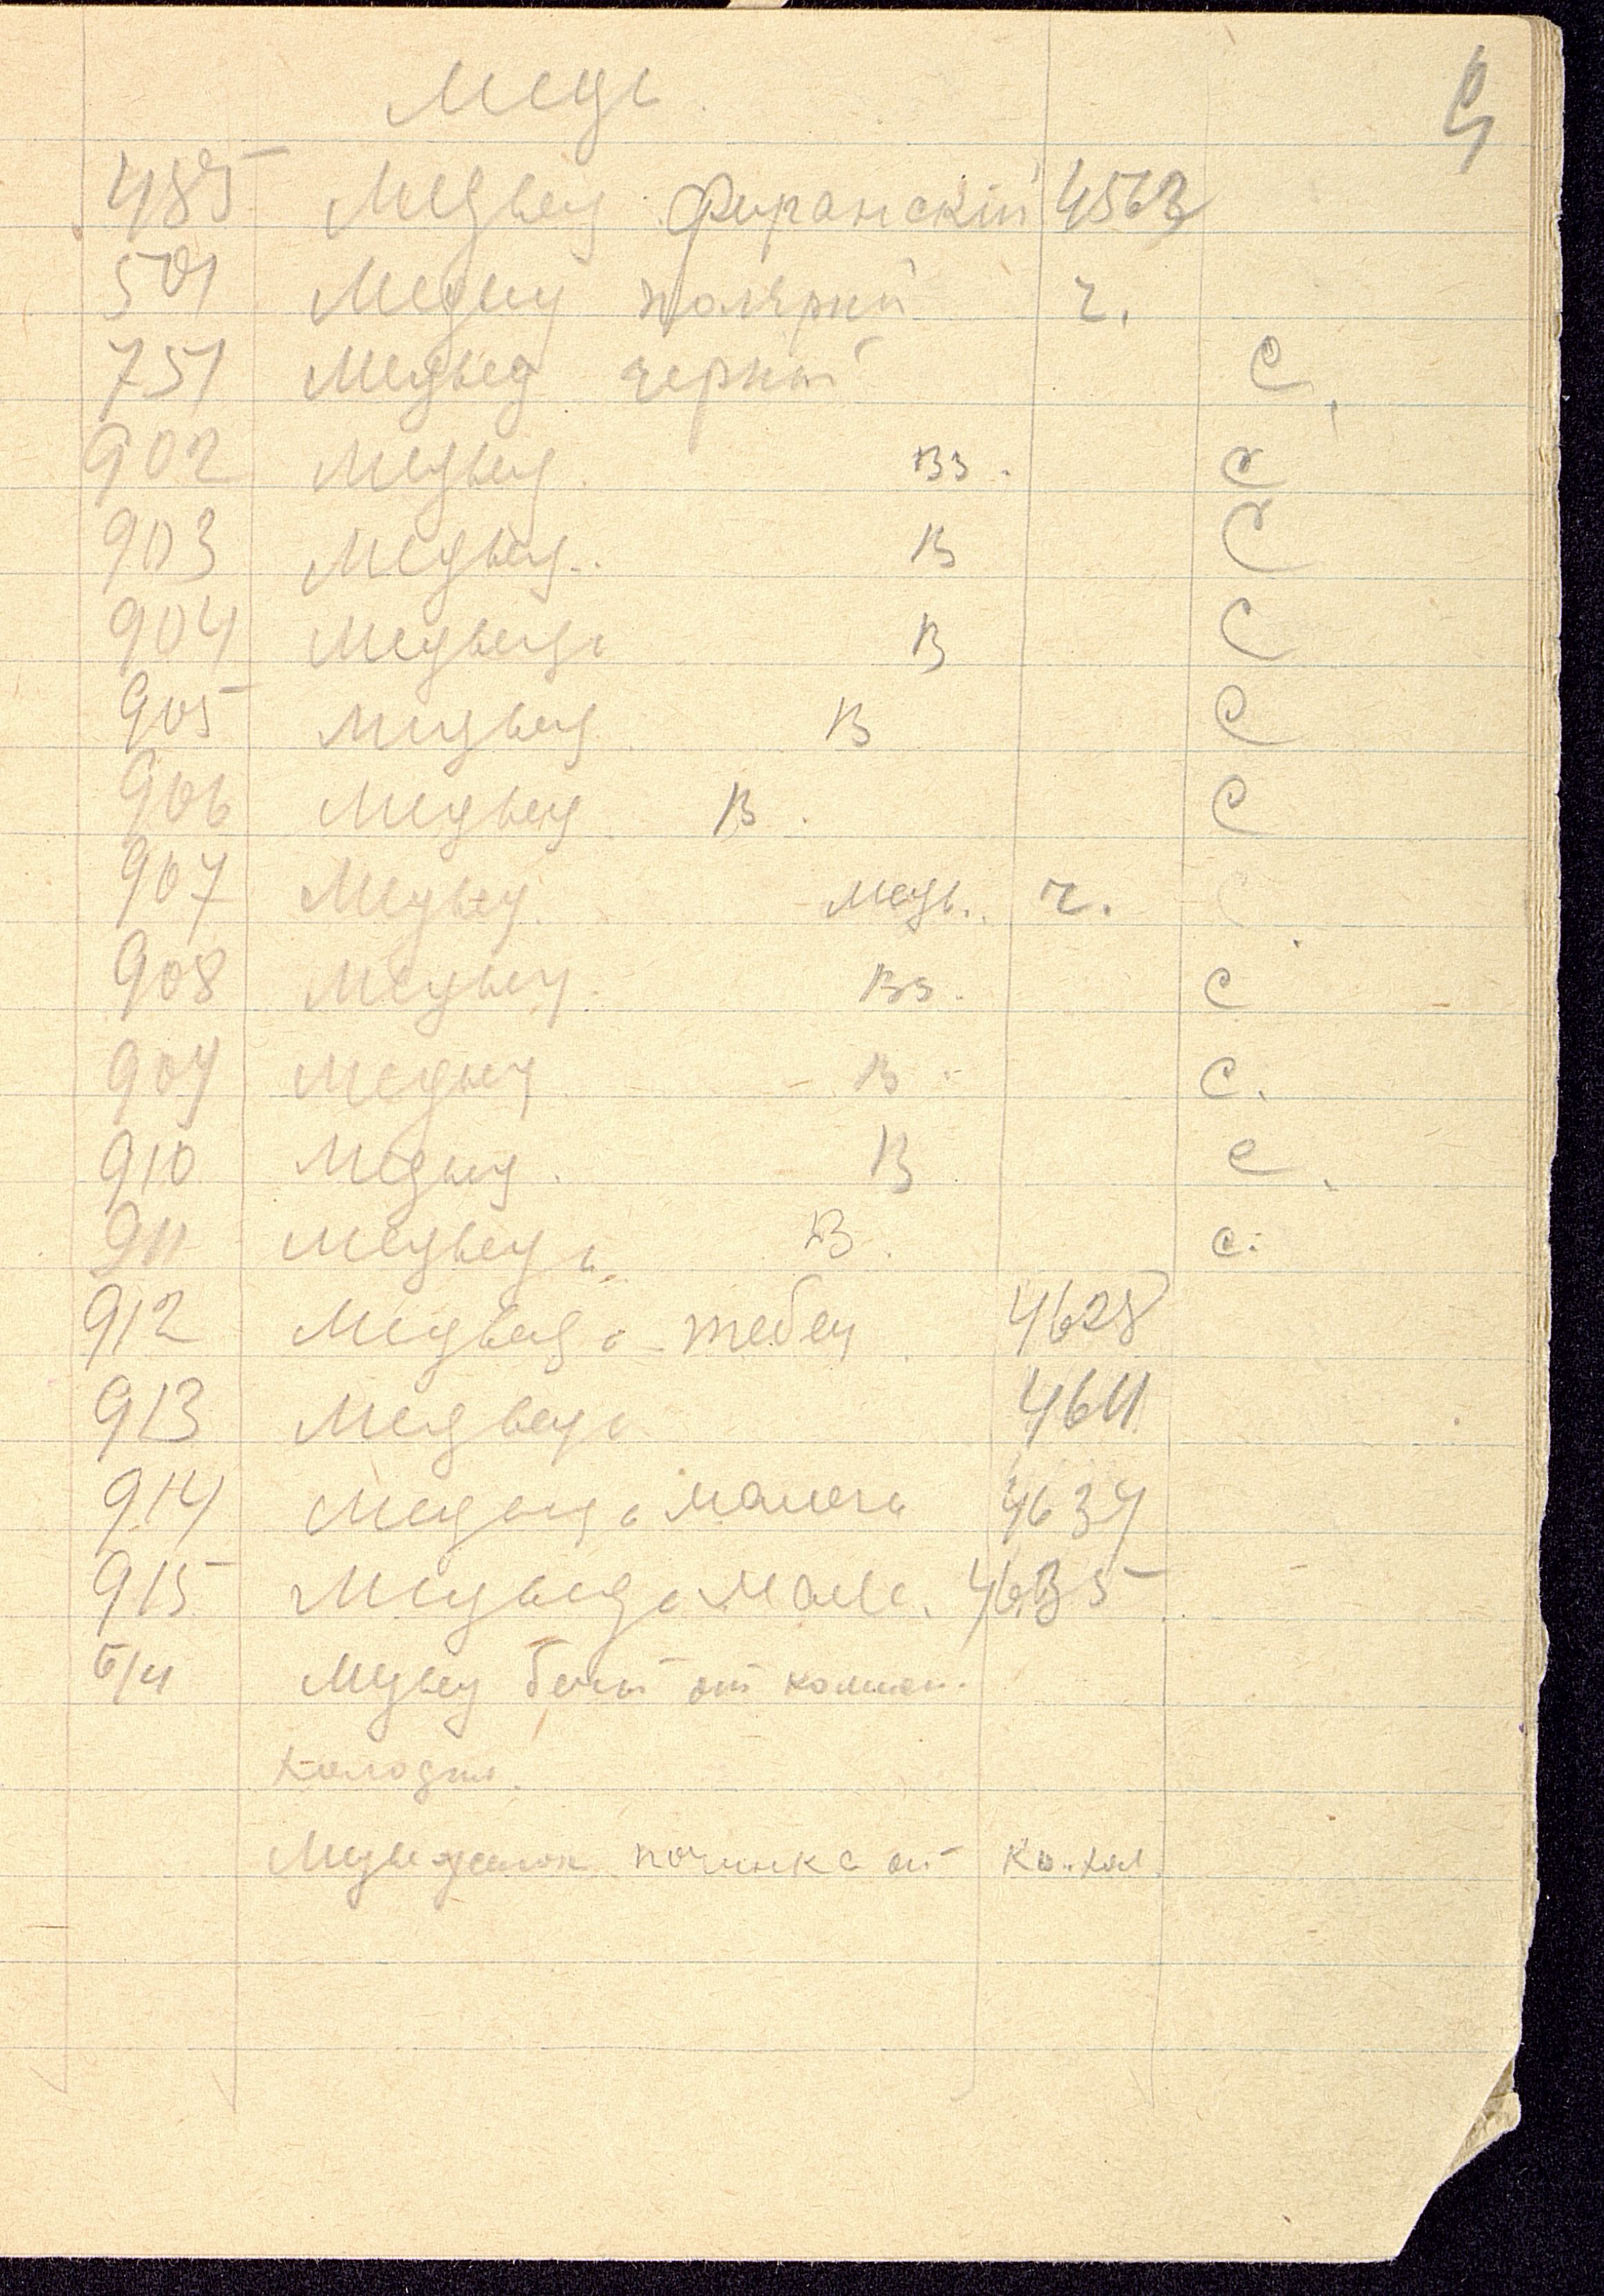 Медв.
485 Медвед 4563
501 Медвед полярный ч.
751 Медвед черный С.
902 Медвед. Вз. С
903 Медвед.. В С
904 Медведь В С
905 Медвед В С
906 Медвед В. С
907 Медвед. медв. ч. С
908 Медвед. Вз. С
909 Медвед В. С.
910 Медвед. В С.
911 Медведь В. С.
912 Медведь 4628
913 Медведь 4611
914 Медведь 4634
915 Медведь 4635
б/н Медвед белый от
Медвежонок починка от